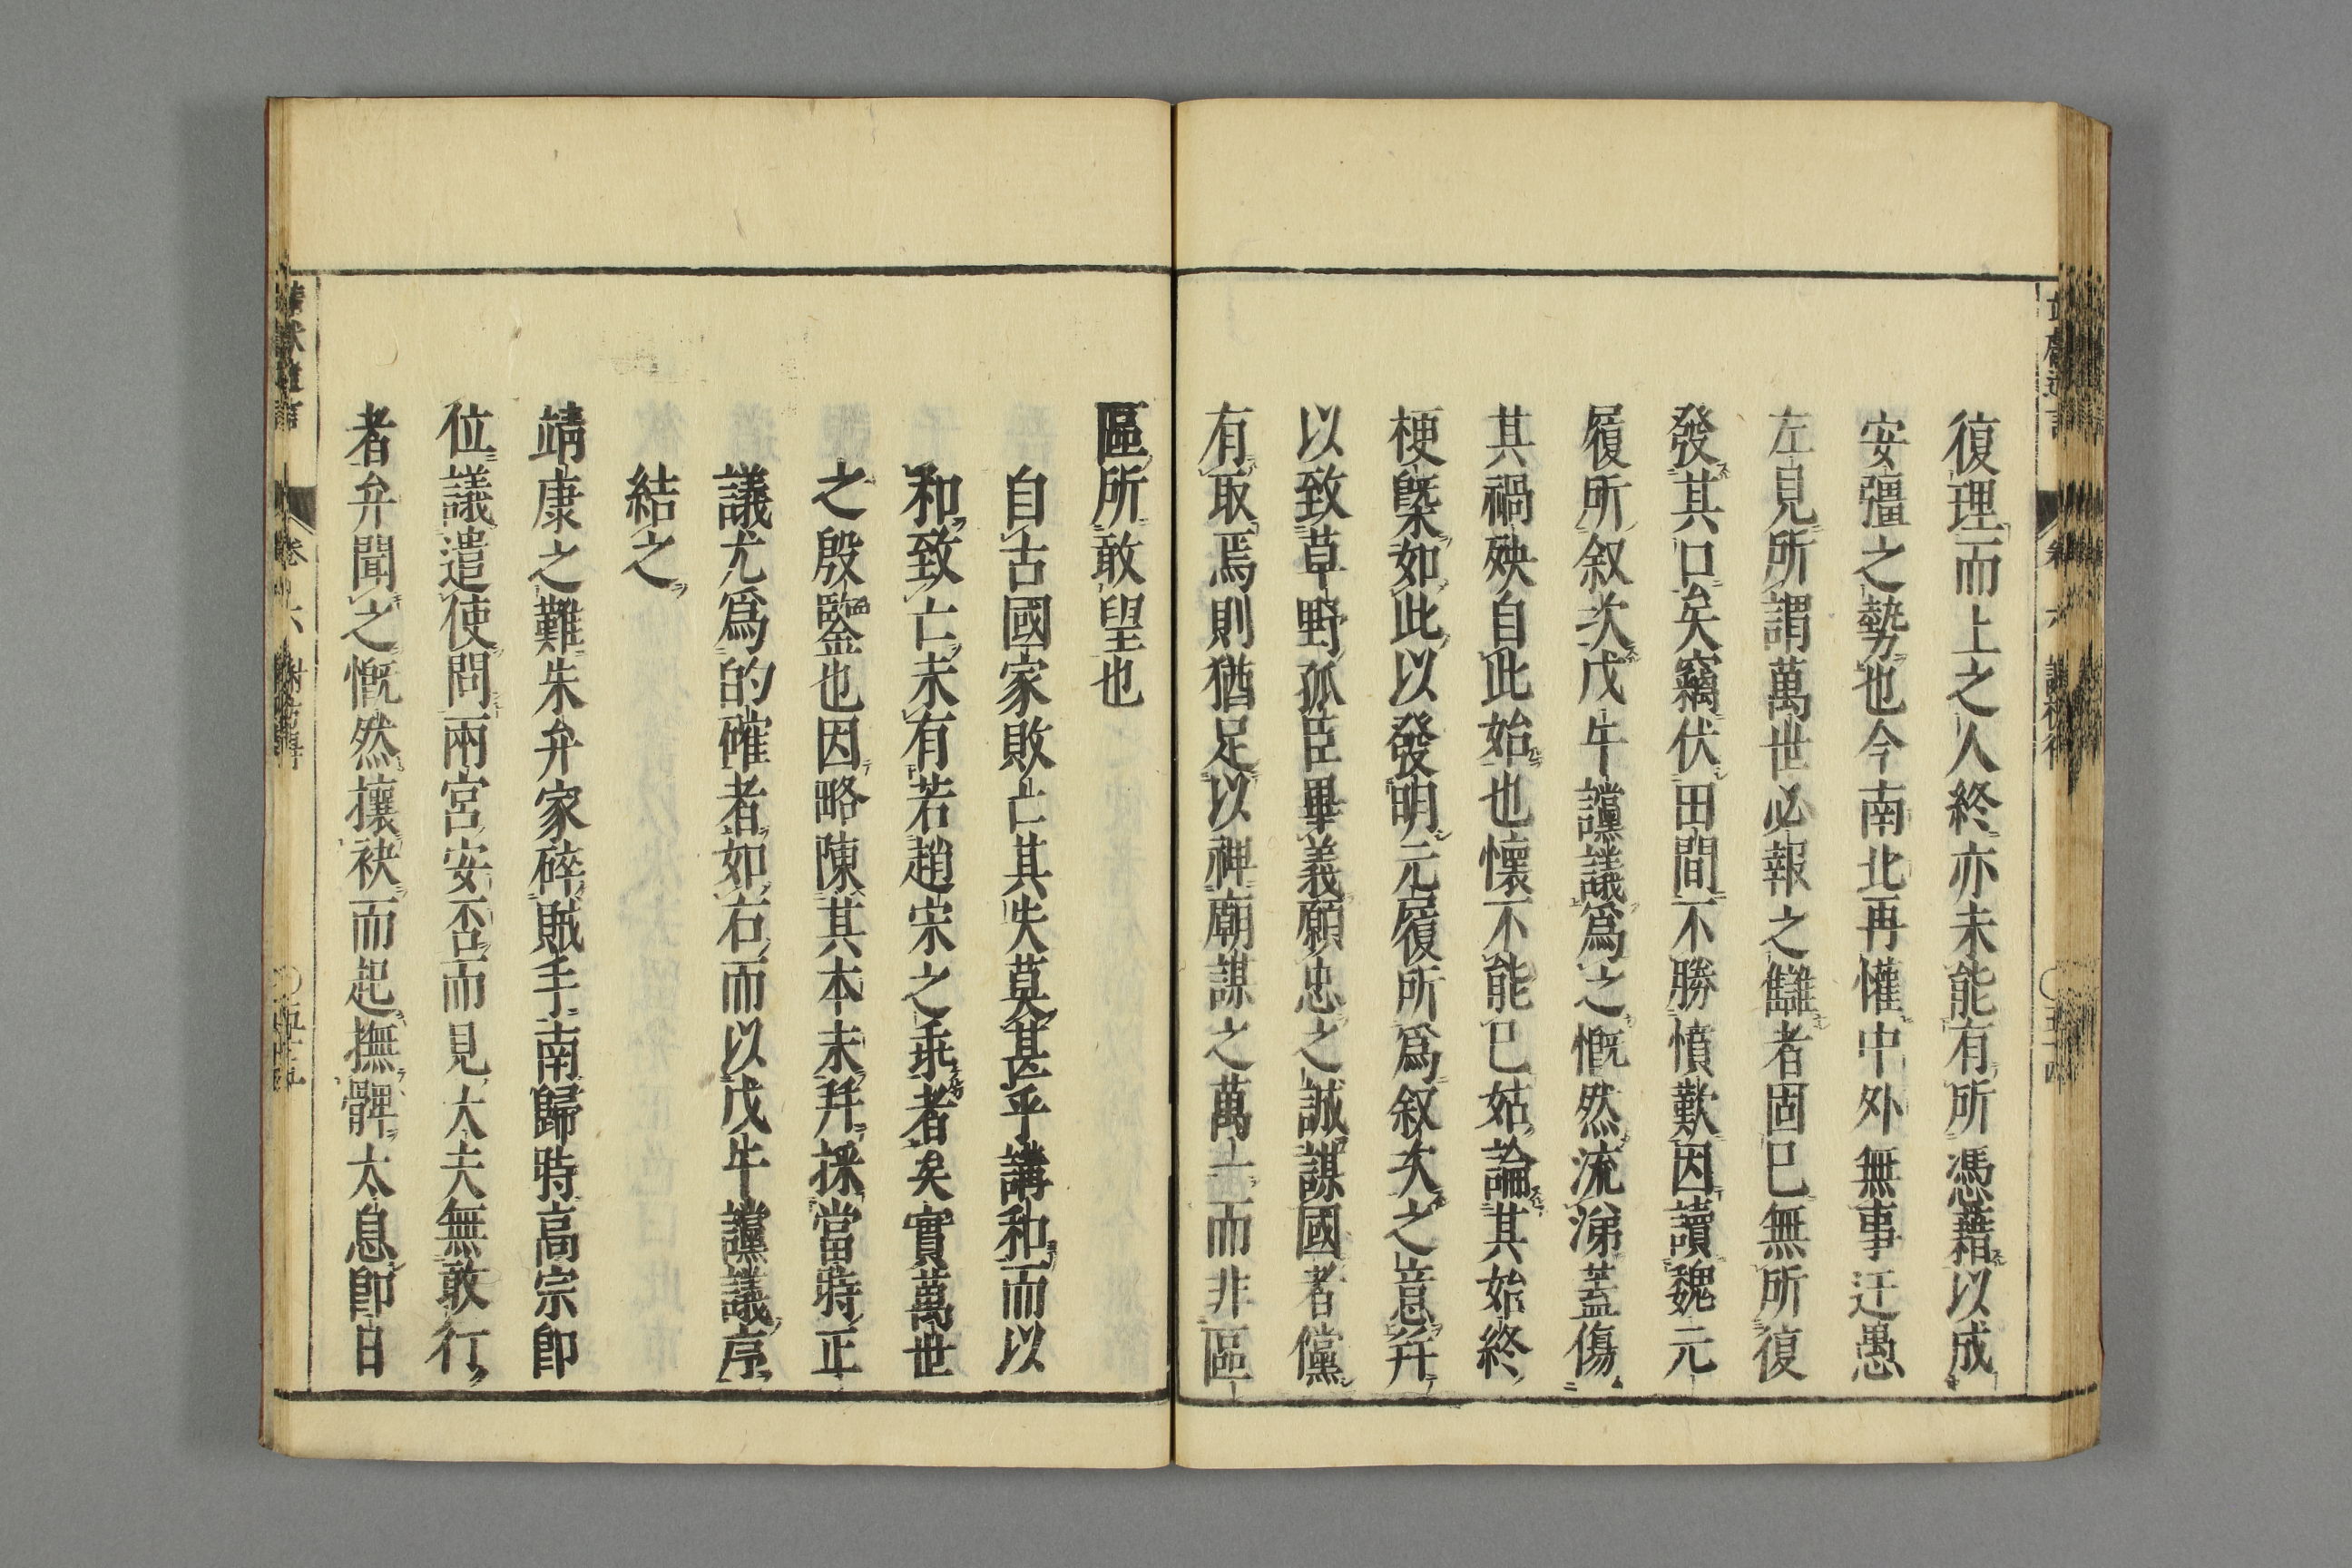 復理而上之人終亦未能有所憑藉以成
安彊之勢也今南北再懽中外無事迂愚
左見所謂萬世必報之讎者固已無所復
發其口矣竊伏田間不勝憤歎因讀魏元
履所叙次戊午讜議爲之慨然流涕蓋傷
其禍殃自此始也懷不能已姑論其始終
梗槩如此以發明元履所爲叙次之意幷
以致草野孤臣畢義願忠之誠謀國者儻
有取焉則猶足以禆廟謀之萬一而非區
區所敢望也
自古國家敗亡其失莫甚乎講和而以
和致亡未有若趙宋之乖者矣實萬世
之殷鑒也因略陳其本末幷採當時正
議尤爲的確者如右而以戊午讜議序
結之
靖康之難朱弁家碎賊手南歸時高宗即
位議遣使問兩宮安否而見大夫無敢行
者弁聞之慨然攘袂而起撫髀太息即日